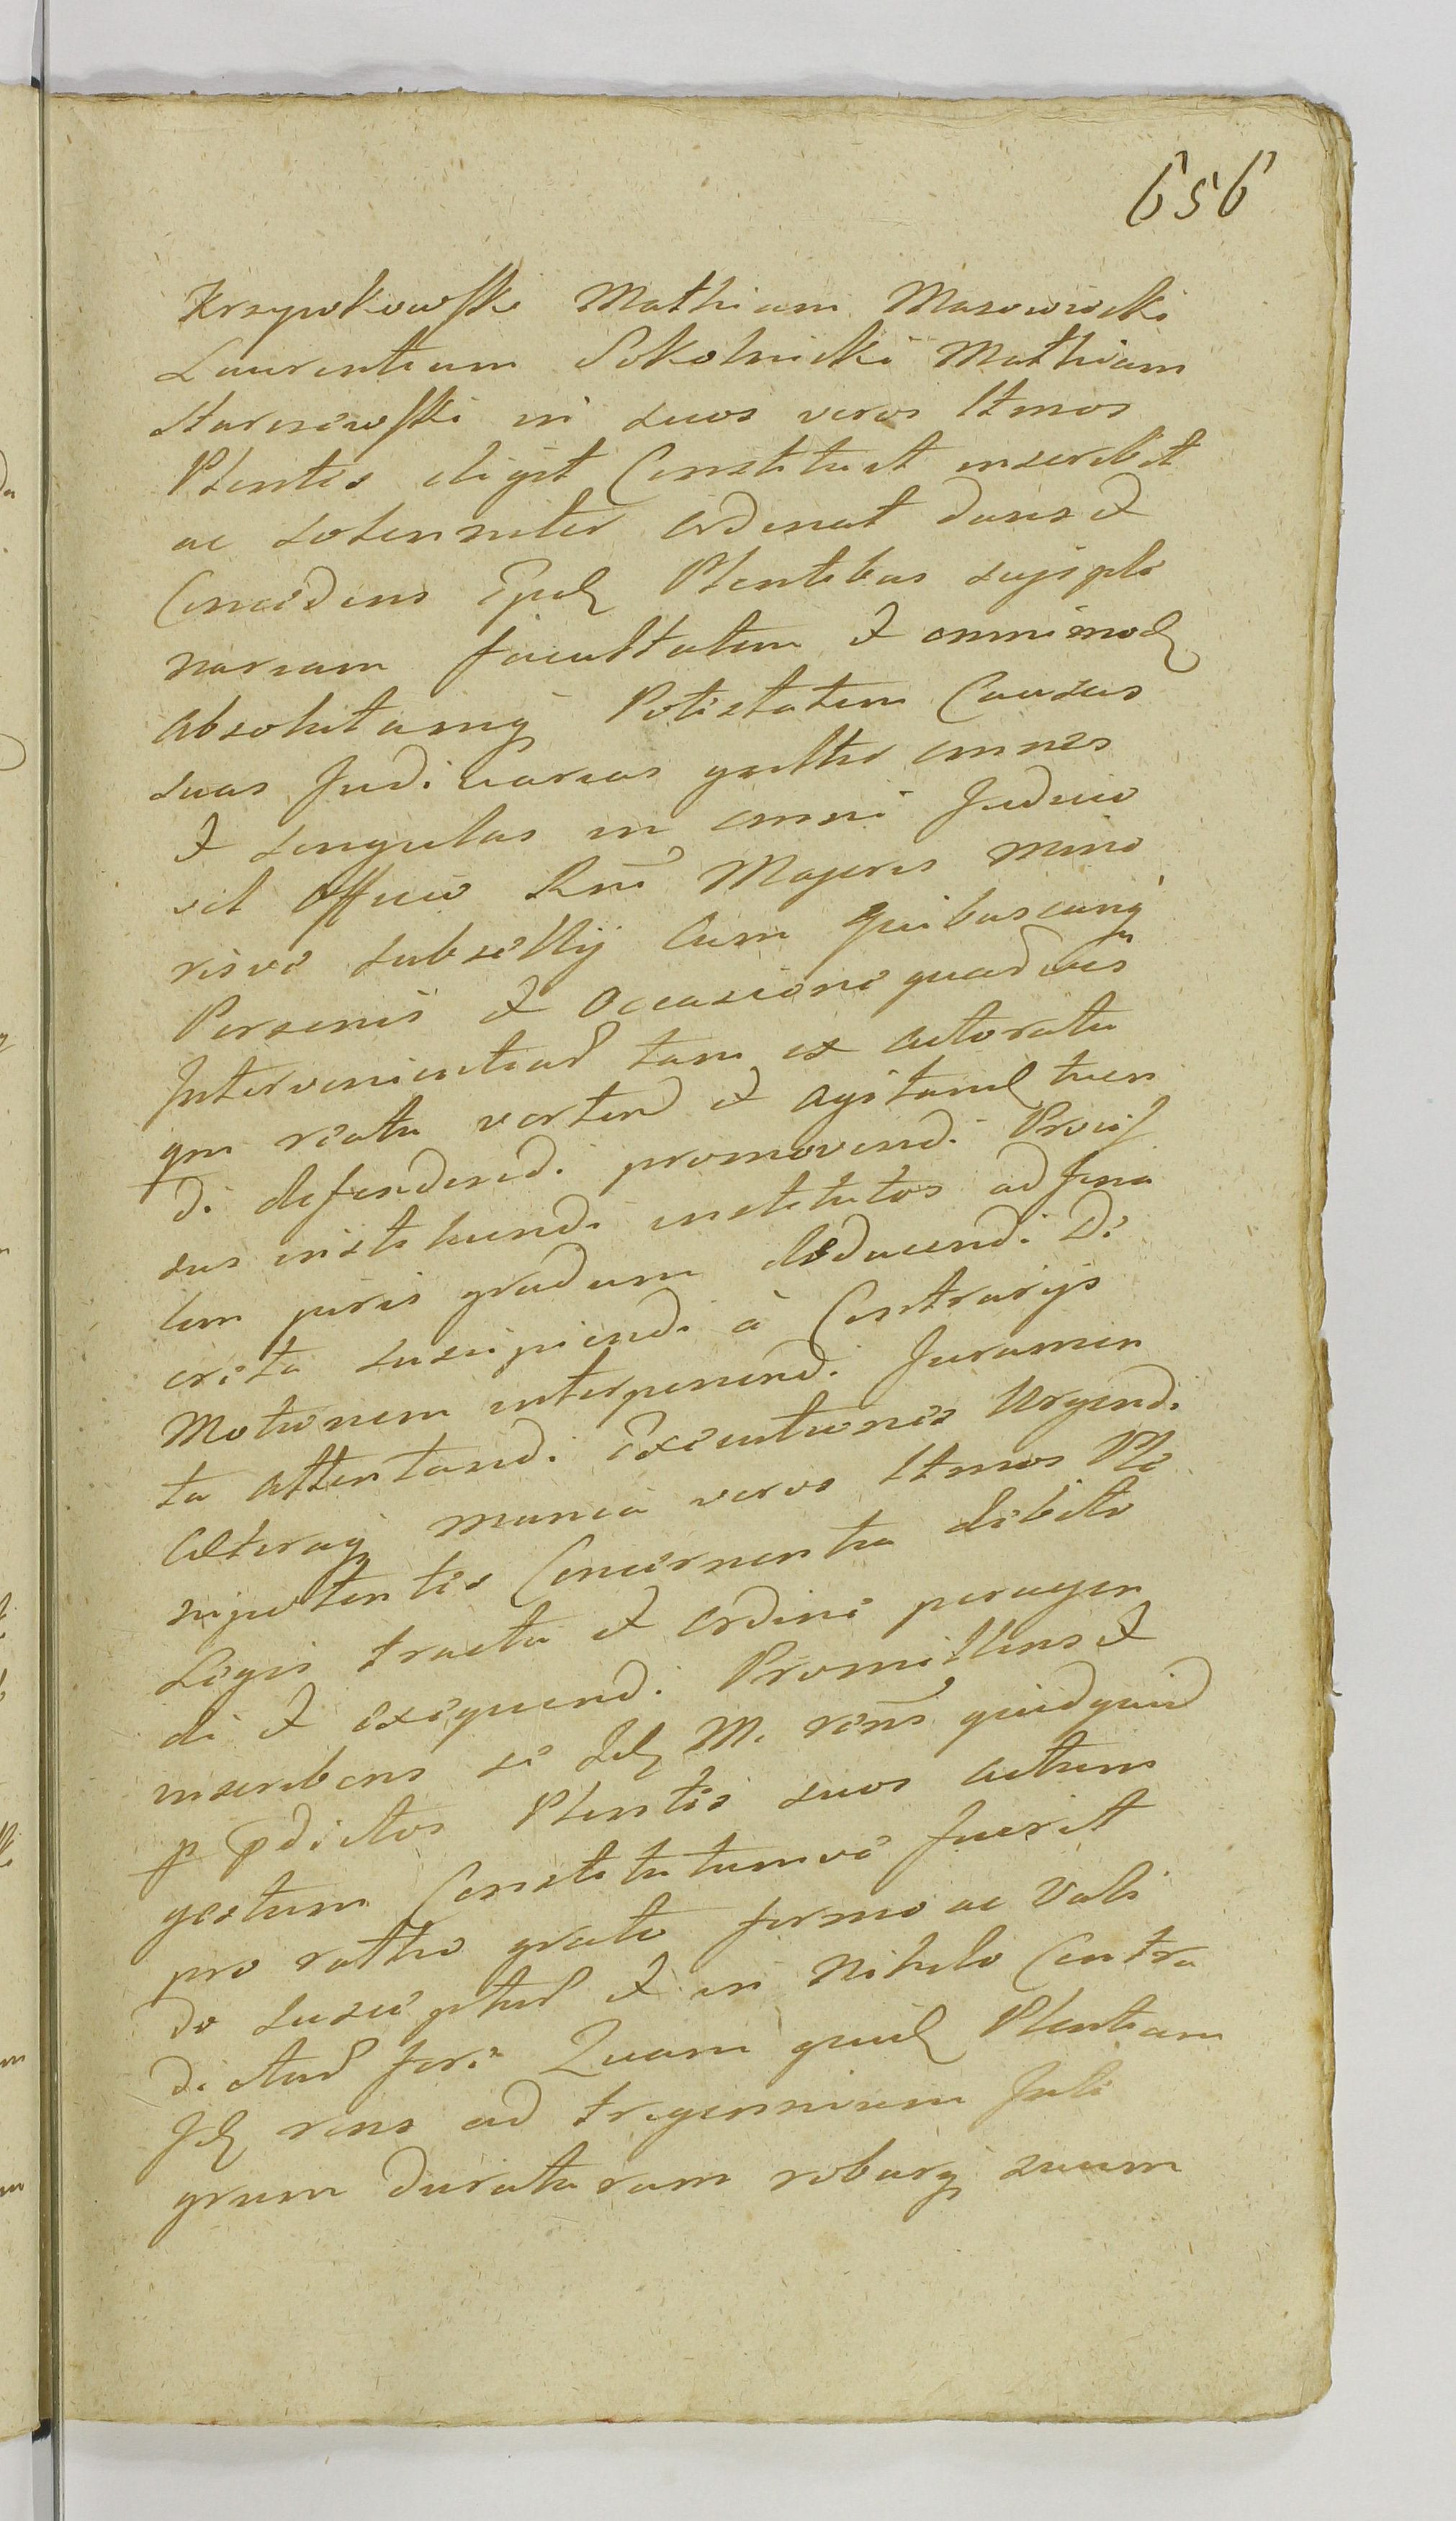 656
Krzywkowski Mathiam Masowiecki
Laurentium Sokolnicki Mathiam
in suos veros ltmos
Plentes eligit Constituit inscribit
ac solenniter ordinat dans et
Concedens Plentibus suis ple
nariam facultatem et omnimod
absolutamq Potestatem Causas
suas Judiciarias gnlter omnes
et singulas in omni Judicio
vel Officio Rni Majoris mino
risve subsellij Cum quibuscunq
Personis et occasione quarumvis
Intervenientiar tam ex actoratu
qm reatu verten et agitand tuen
di defendendi promovendi Proces
sus instituendi institutos ad fina
lem juris gradum deducendi De
creta suscipiendi à Contrarijs
Motionem interponend. Juramen
ta attentandi Executiones Urgendi
Caeteraq munia veros ltmos Ple
nipotentes Concernentia debito
Legis tractu et ordine peragen
di et exequendi. Promittens et
inscribens se Id M. rens quidquid
p pdictos Plentes suos actum
gestum Constitutumve fuerit
pro ratto grato firmo ac Vali
do suscepturus et in nihilo Contra
dicturus fore Quam quid Plentiam
Id rens ad triennium Inte
grum duraturam roburq suum